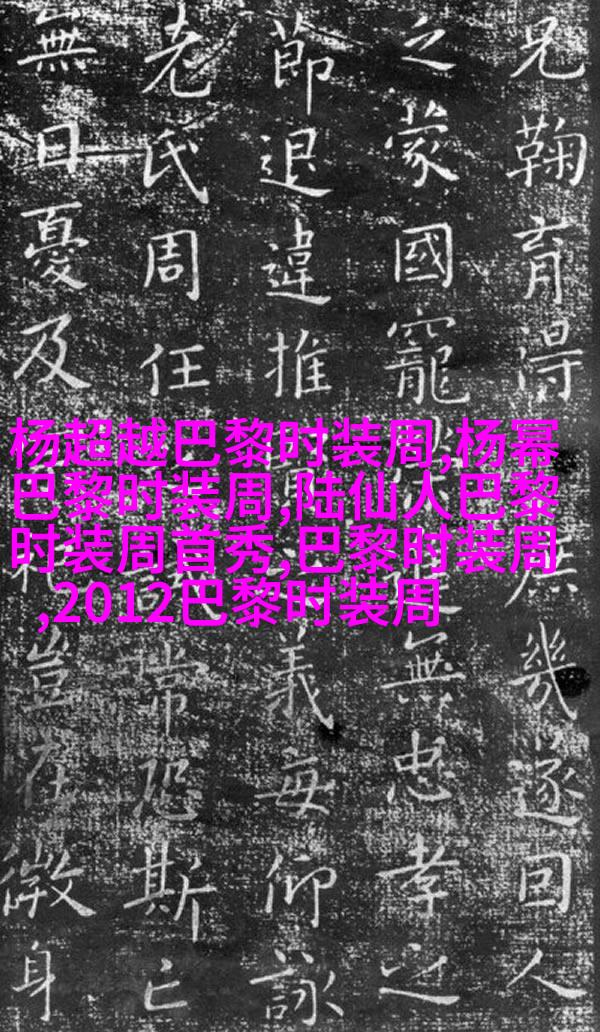 杨超越巴黎时装周,杨幂
巴黎时装周,陆仙人巴黎
时装周首秀,巴黎时装周
,2012巴黎时装周
兄鞠育得庶幾遂回人
之蒙國寵無忠孝之
節退違推義每仰詠
老氏周任常恐斯亡
無日憂及豈在微身